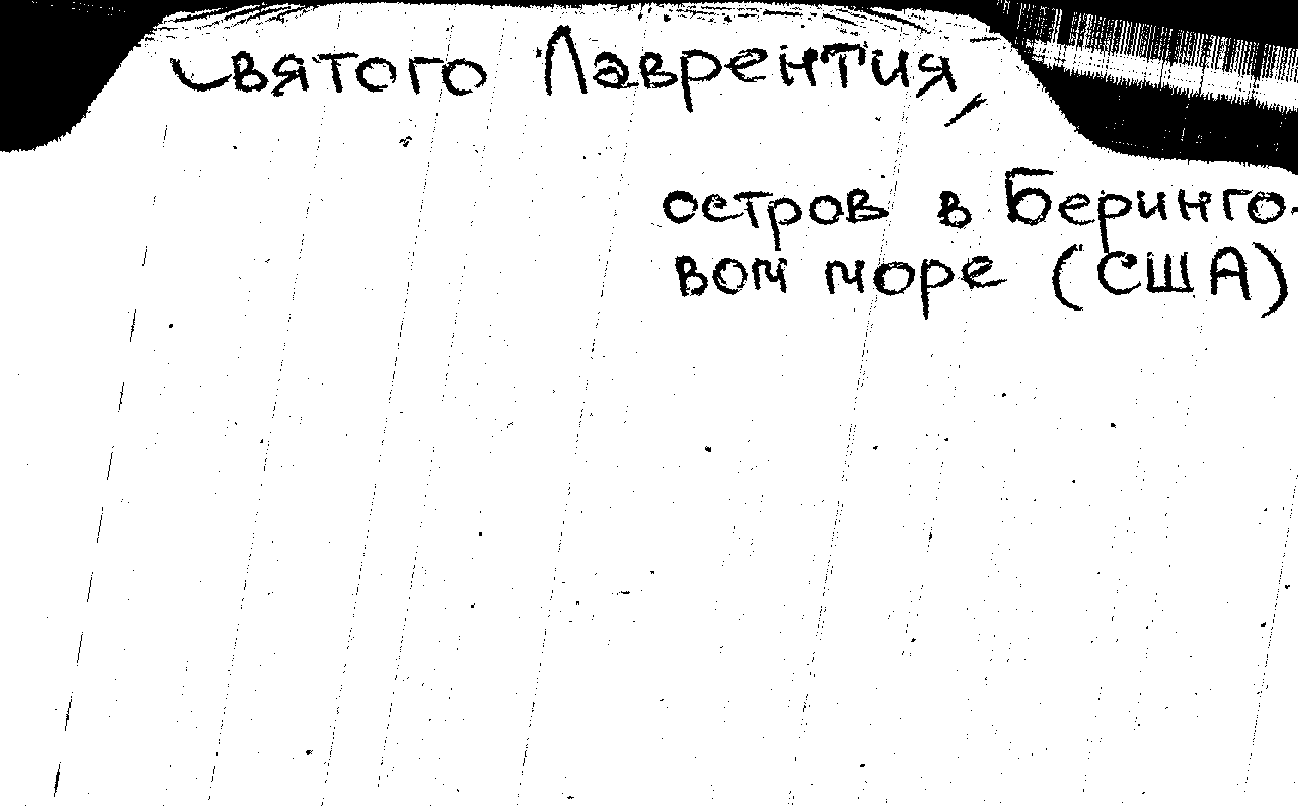 Святого Лаврентия,
остров в Беринго-
вом море (США)